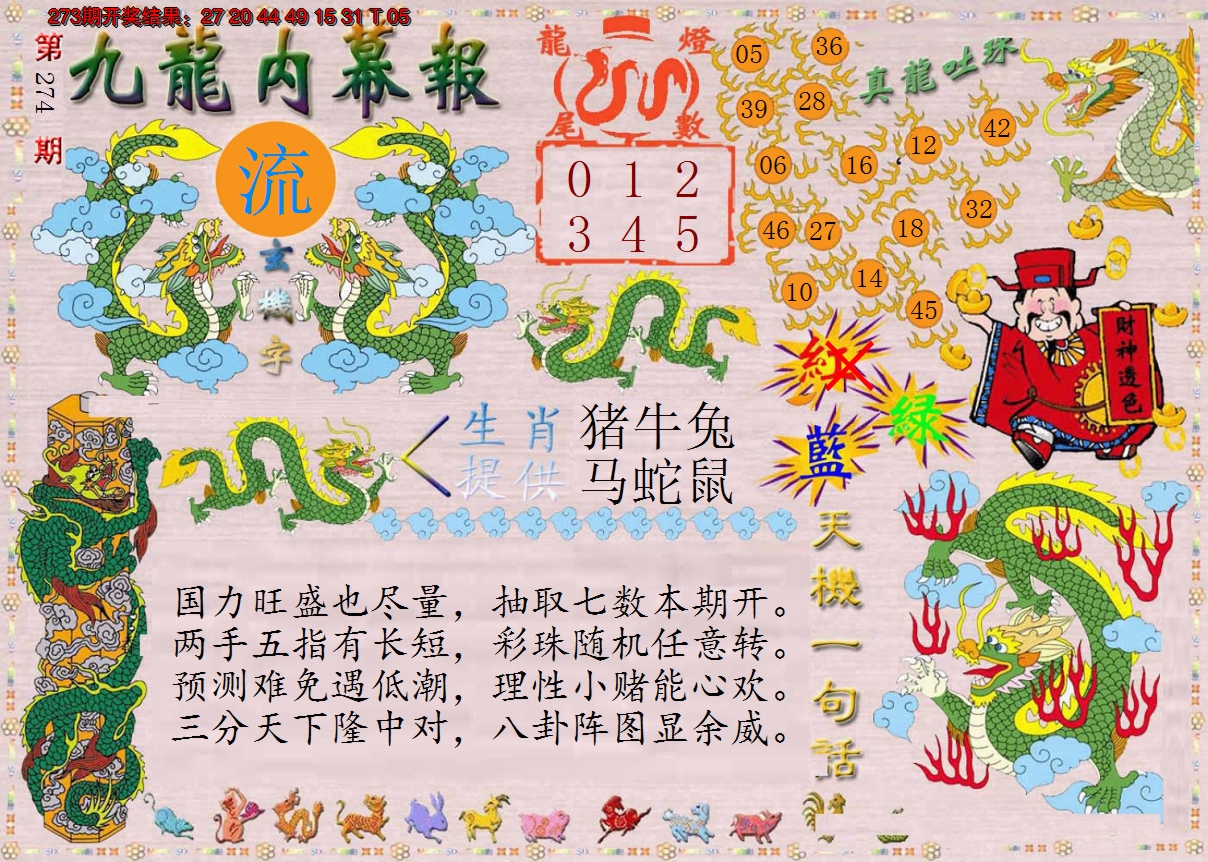 273期开奖结果：27 20 44 49 15 31 T 05
第274期
九龍内幕報
流
玄機字
龍燈尾數
0 1 2
3 4 5
真龍吐珠
05
36
39
28
06
16
12
42
46
27
18
32
10
14
45
財神透色
紅
綠
藍
生肖提供
猪牛兔
马蛇鼠
国力旺盛也尽量，抽取七数本期开。
两手五指有长短，彩珠随机任意转。
预测难免遇低潮，理性小赌能心欢。
三分天下隆中对，八卦阵图显余威。
天機一句話